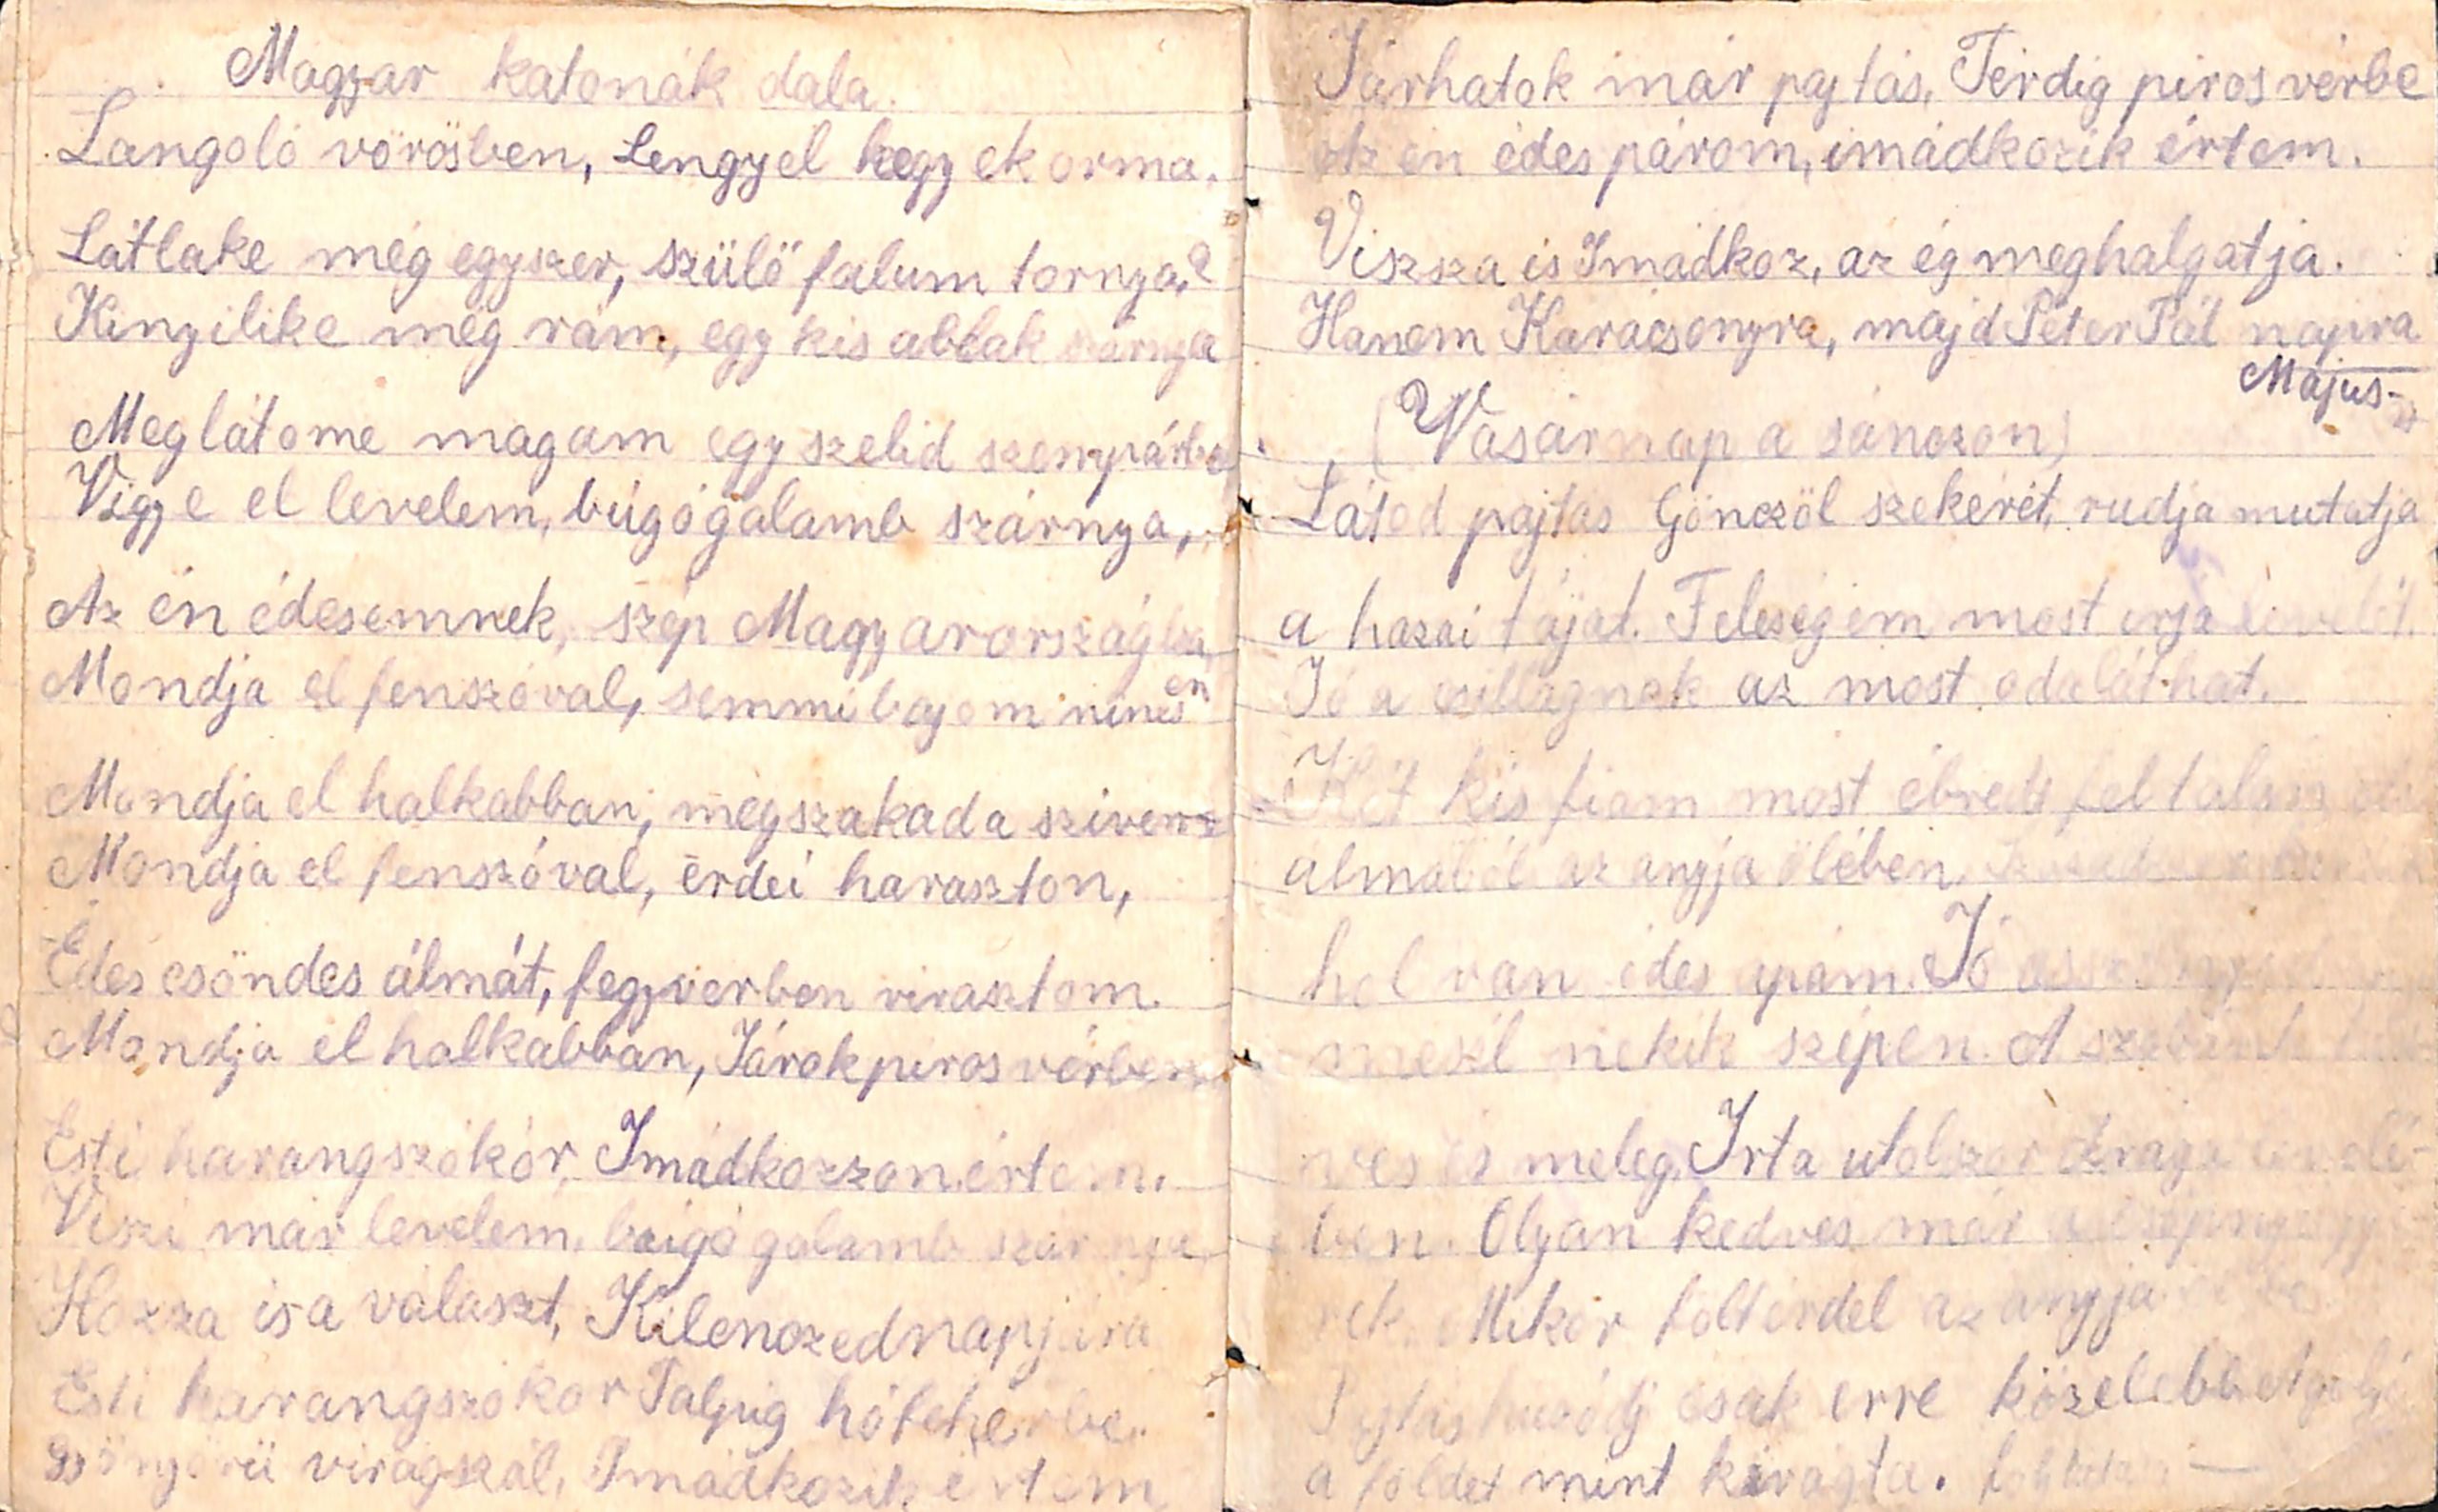 Magyar katonák dala.
Langoló vörösben, Lengyel hegyek orma.
Látlake még egyszer, szülő falum tornya?
Kinyilike még rám, egy kis ablak szárnya
Meglátome magam egy szelid szempárba
Vigye el levelem, búgó galamb szárnya,
Az én édesemnek, szép Magyarországba
Mondja el fenszóval, semmi bajom nincsen
Mondja el halkabban, megszakad a szivem
Mondja el fenszóval, érdei haraszton,
Édes csöndes álmát, fegyverben virasztom.
Mondja el halkabban, Járok piros vérben
Esti harangszókór, Imádkozzon értem.
Viszi már levelem, búgó galamb szárnya
Hozza is a választ, Kilenczed napjára
Esti harangszókor Talpig hófehérbe.
Gyönyörü virágszál, Imádkozik értem
Járhatok már pajtás, Térdig piros vérbe
Az én édes párom, imádkozik értem.
Viszsza is Imádkoz, az ég meghalgatja.
Hanem Karácsonyra, majd Péter Pál napra
Május-
(Vasárnap a sánczon)
Látod pajtás Gönczöl szekerét, rudja mutatja
a hazai tájat. Feleségem most irja levelét.
Jó a csillagnak az most odaláthat.
Két kis fiam most ébredt fel talán
álmából az anyja ölében.
hol van édes apám. Jó
mesél nekik szépen. A
és meleg. Irta utolszor drága levelé-
ben. Olyan kedves már
rek Mikor föltérdel az anyja
Pajtás huzódj csak erre közelebb
a földet mint kivágta.